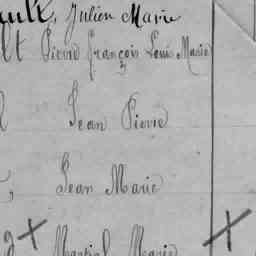 ault, Julien Marie
lt Pierre François Louis Marie
Jean Pierre
Jean Marie
Martial Marie